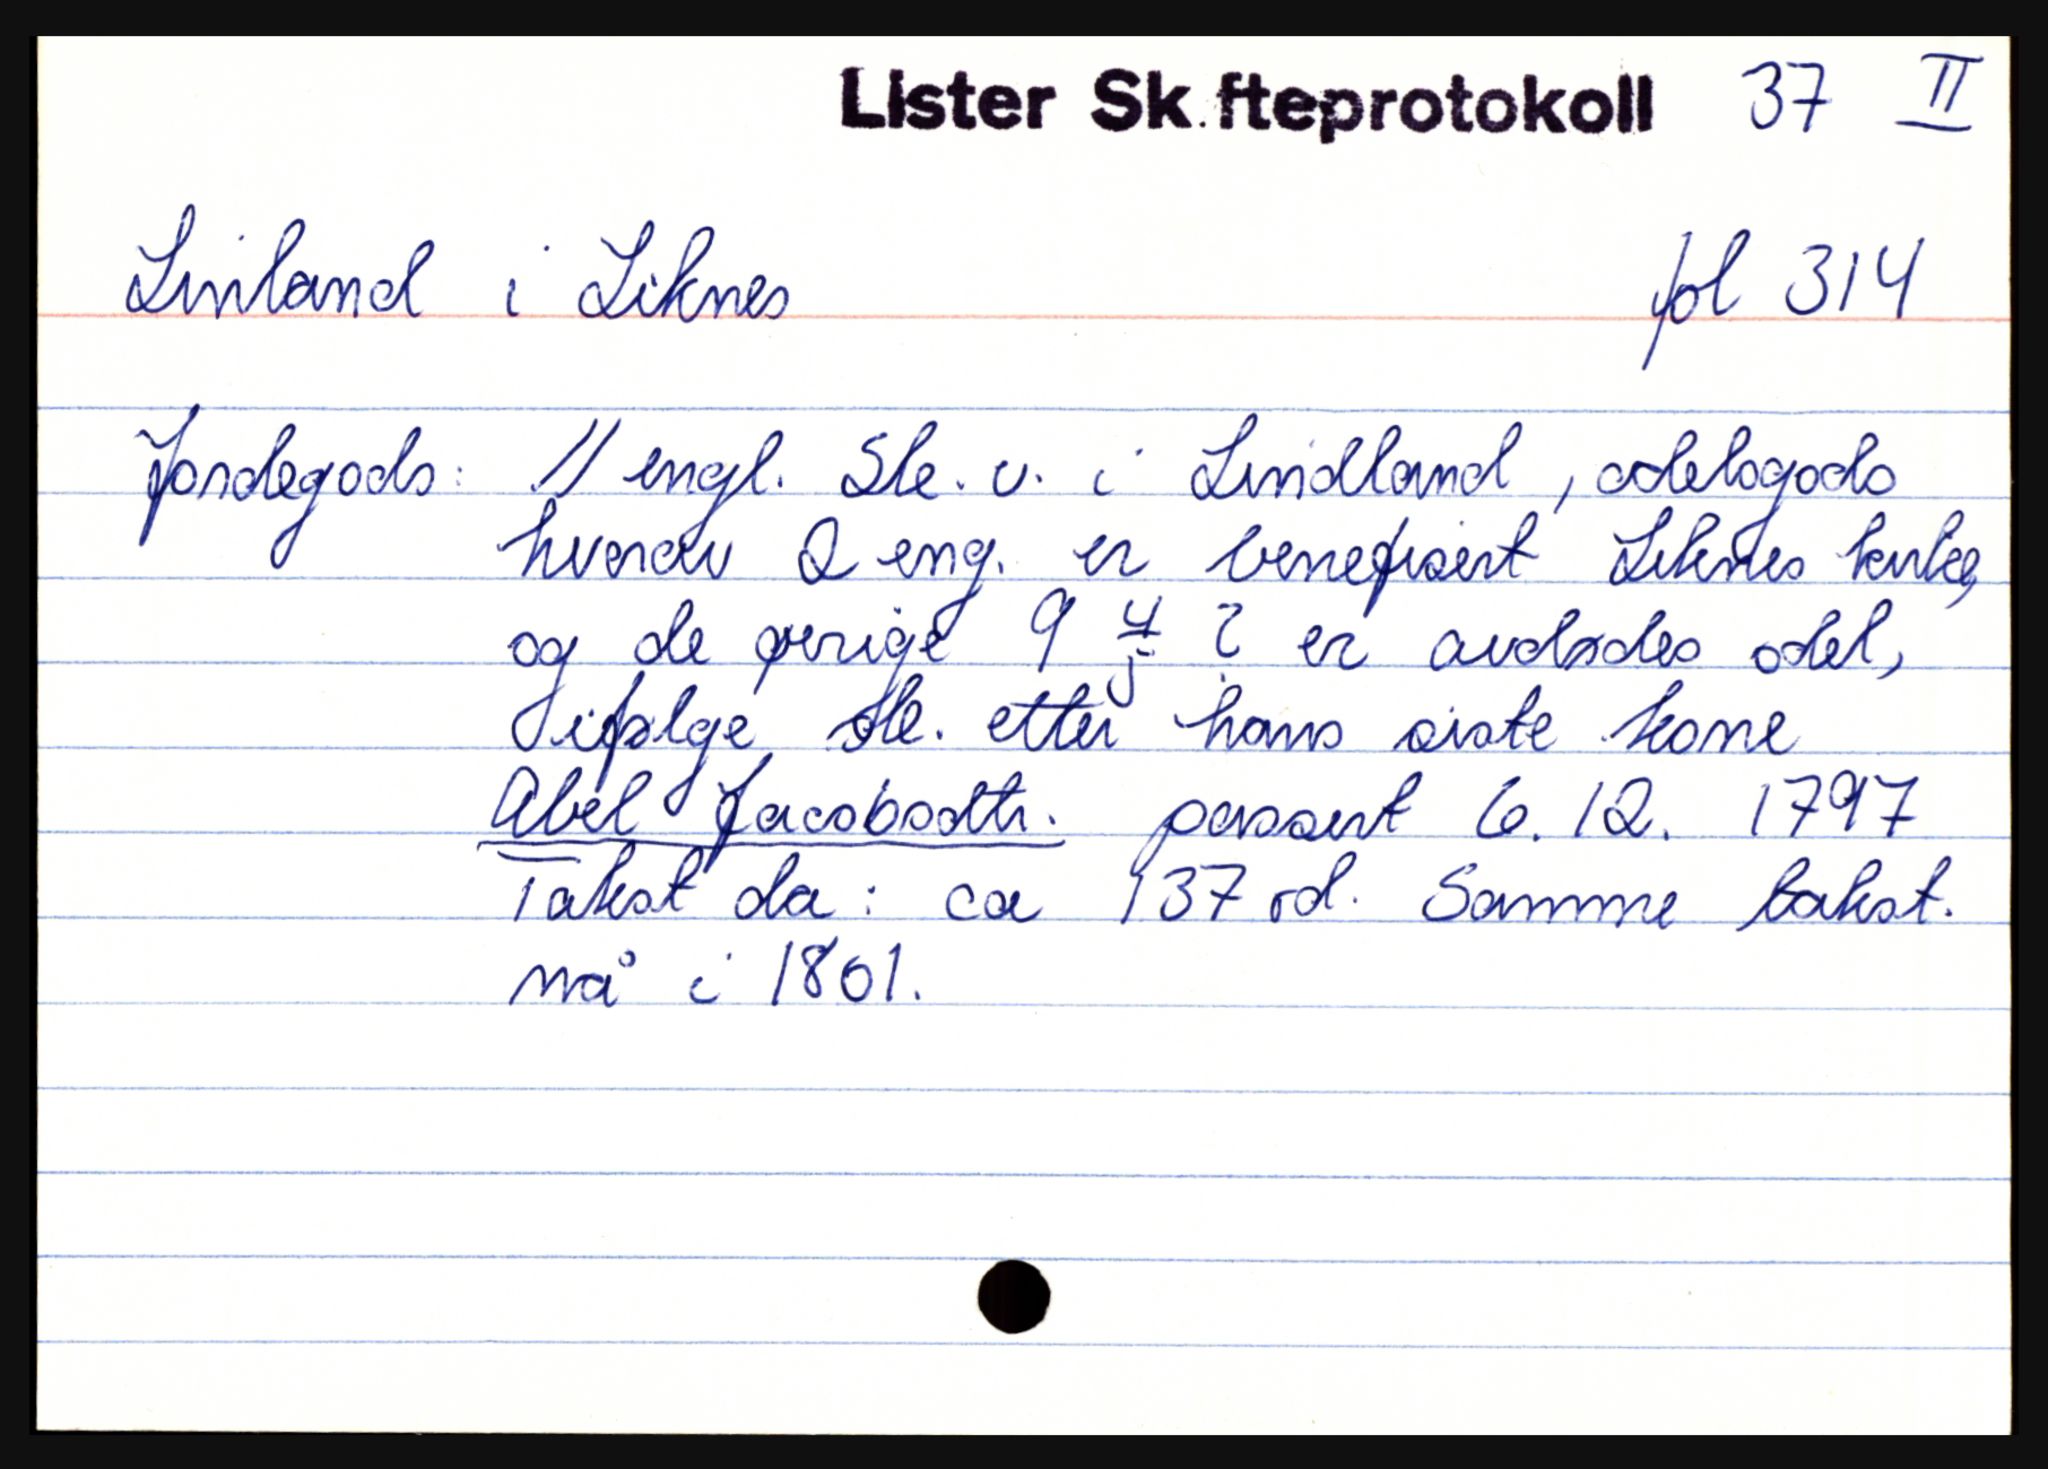 Lister Sk.fteprotokoll 37 II
Linland i Liknes fol 314
Jordegods: 11 engl. Sk. v. i Lindland, odelsgods
hvorav 2 eng. er benefisert Liknes kirke,
og de øvrige 9 ? er avdødes odel,
ifølge sk. etter hans siste kone
Abel Jacobsdtr. passert 6.12. 1797
Takst da: ca 137 rd. Samme takst.
nå i 1801.